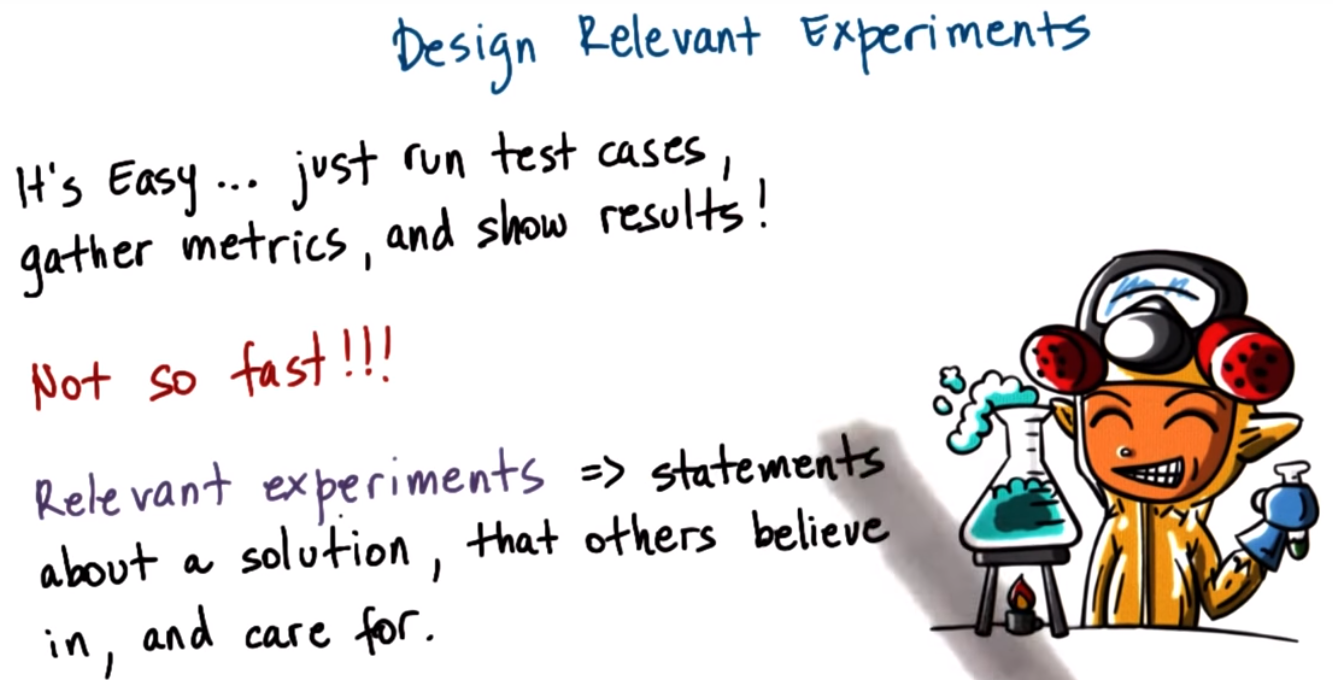 Design Relevant Experiments
It's Easy... just run test cases,
gather metrics, and show results!
Not so fast!!!
Relevant experiments => statements
about a solution, that others believe
in, and care for.